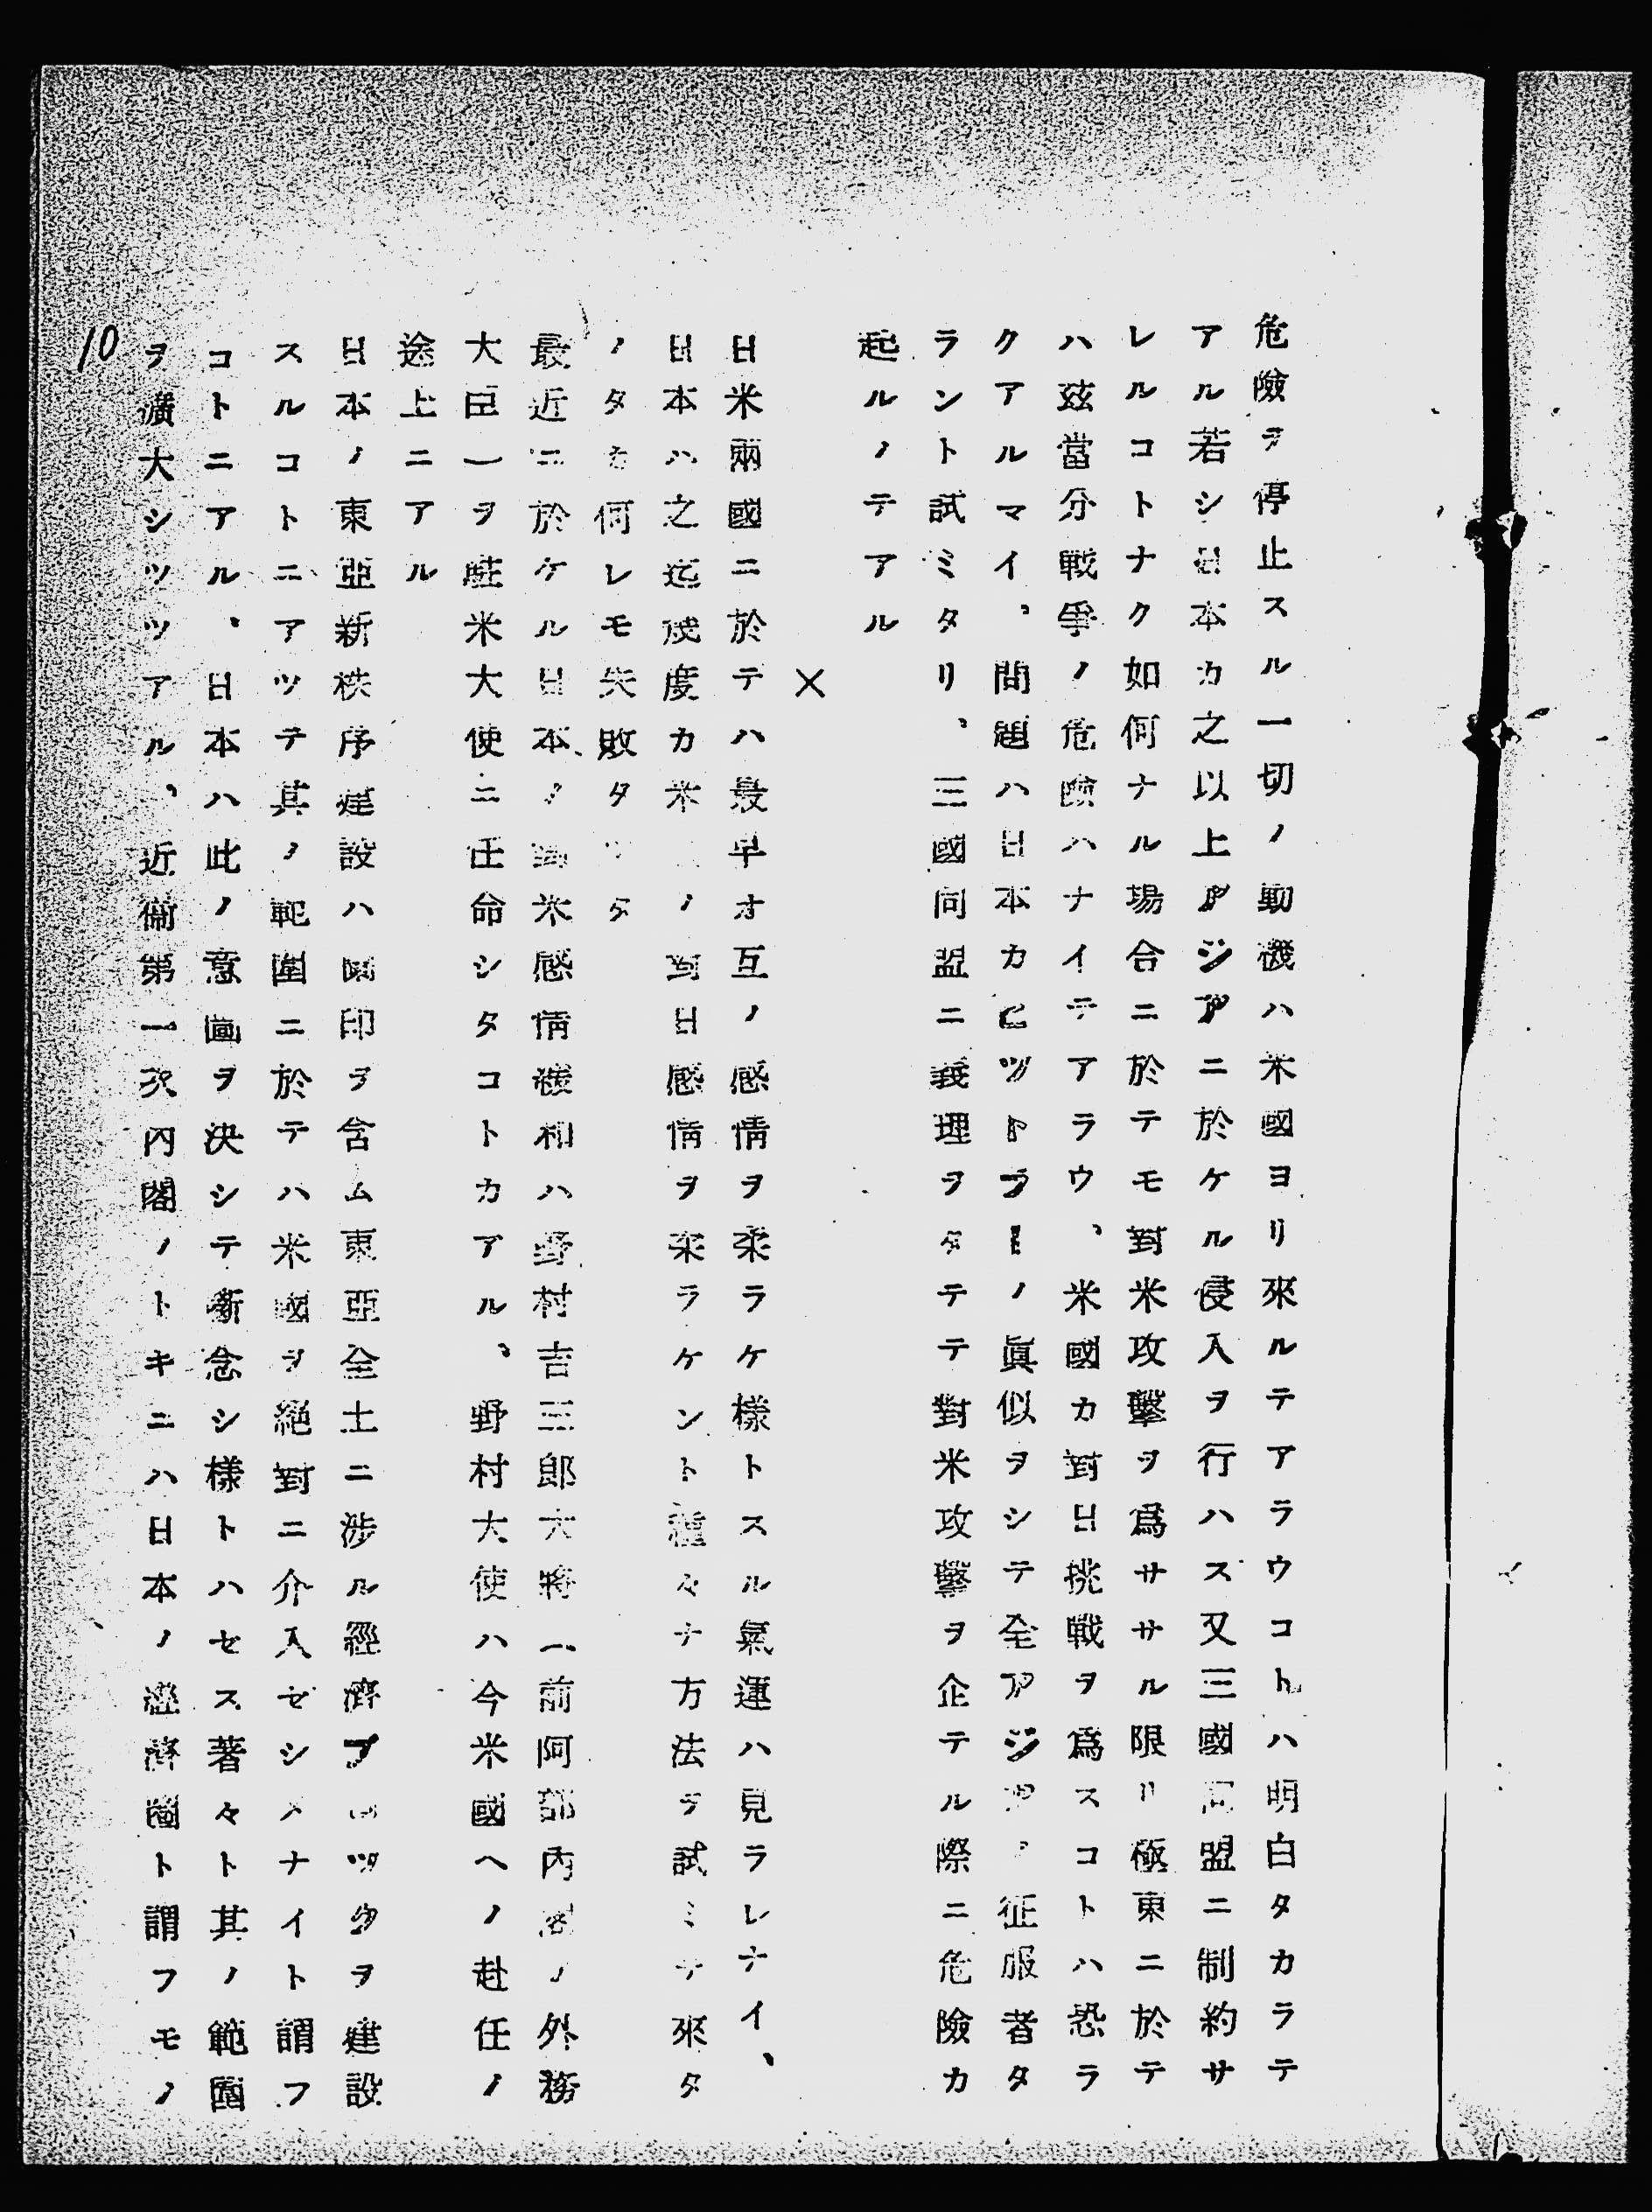 危險ヲ停止スル一切ノ動機ハ米國ヨリ來ルテアラウコトハ明白タカラテ
アル若シ日本カ之以上アジアニ於ケル侵入ヲ行ハス又三國同盟ニ制約サ
レルコトナク如何ナル場合ニ於テモ對米攻擊ヲ爲ササル限リ極東ニ於テ
ハ玆當分戰爭ノ危險ハナイテアラウ、米國カ對日挑戰ヲ爲スコトハ恐ラ
クアルマイ、問題ハ日本カヒツトラーノ眞似ヲシテ全アジアノ征服者タ
ラント試ミタリ、三國同盟ニ義理ヲタテテ對米攻擊ヲ企テル際ニ危險カ
起ルノテアル
×
日米兩國ニ於テハ最早オ互ノ感情ヲ柔ラケ樣トスル氣運ハ見ラレナイ、
日本ハ之迄幾度カ米ノ對日感情ヲ柔ラケント種々ナ方法ヲ試ミテ來タ
ノタカ何レモ失敗タツタ
最近ニ於ケル日本ノ對米感情緩和ハ野村吉三郎大將(前阿部內閣ノ外務
大臣)ヲ駐米大使ニ任命シタコトカアル、野村大使ハ今米國ヘノ赴任ノ
途上ニアル
日本ノ東亞新秩序建設ハ蘭印ヲ含ム東亞全土ニ涉ル經濟ブロツクヲ建設
スルコトニアツテ其ノ範圍ニ於テハ米國ヲ絕對ニ介入セシメナイト謂フ
コトニアル、日本ハ此ノ意圖ヲ決シテ斷念シ樣トハセス著々ト其ノ範圍
ヲ擴大シツツアル、近衞第一次內閣ノトキニハ日本ノ經濟圈ト謂フモノ
10